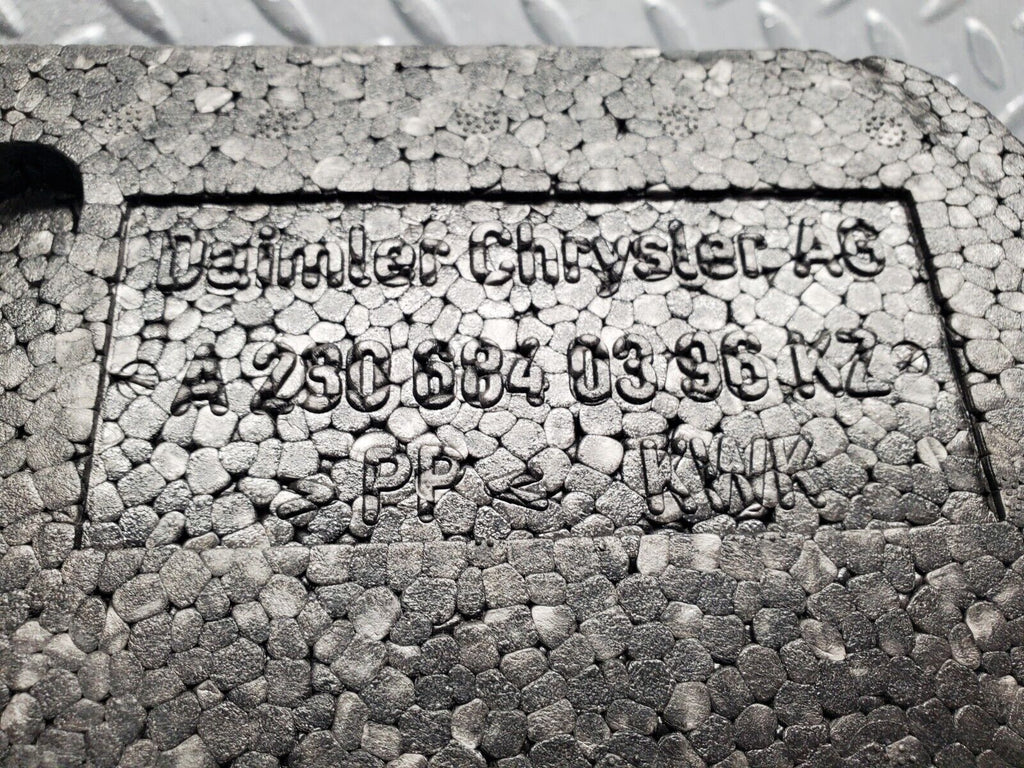 Daimler Chrysler AG
A 230 684 03 96 KZ
> PP < KWK